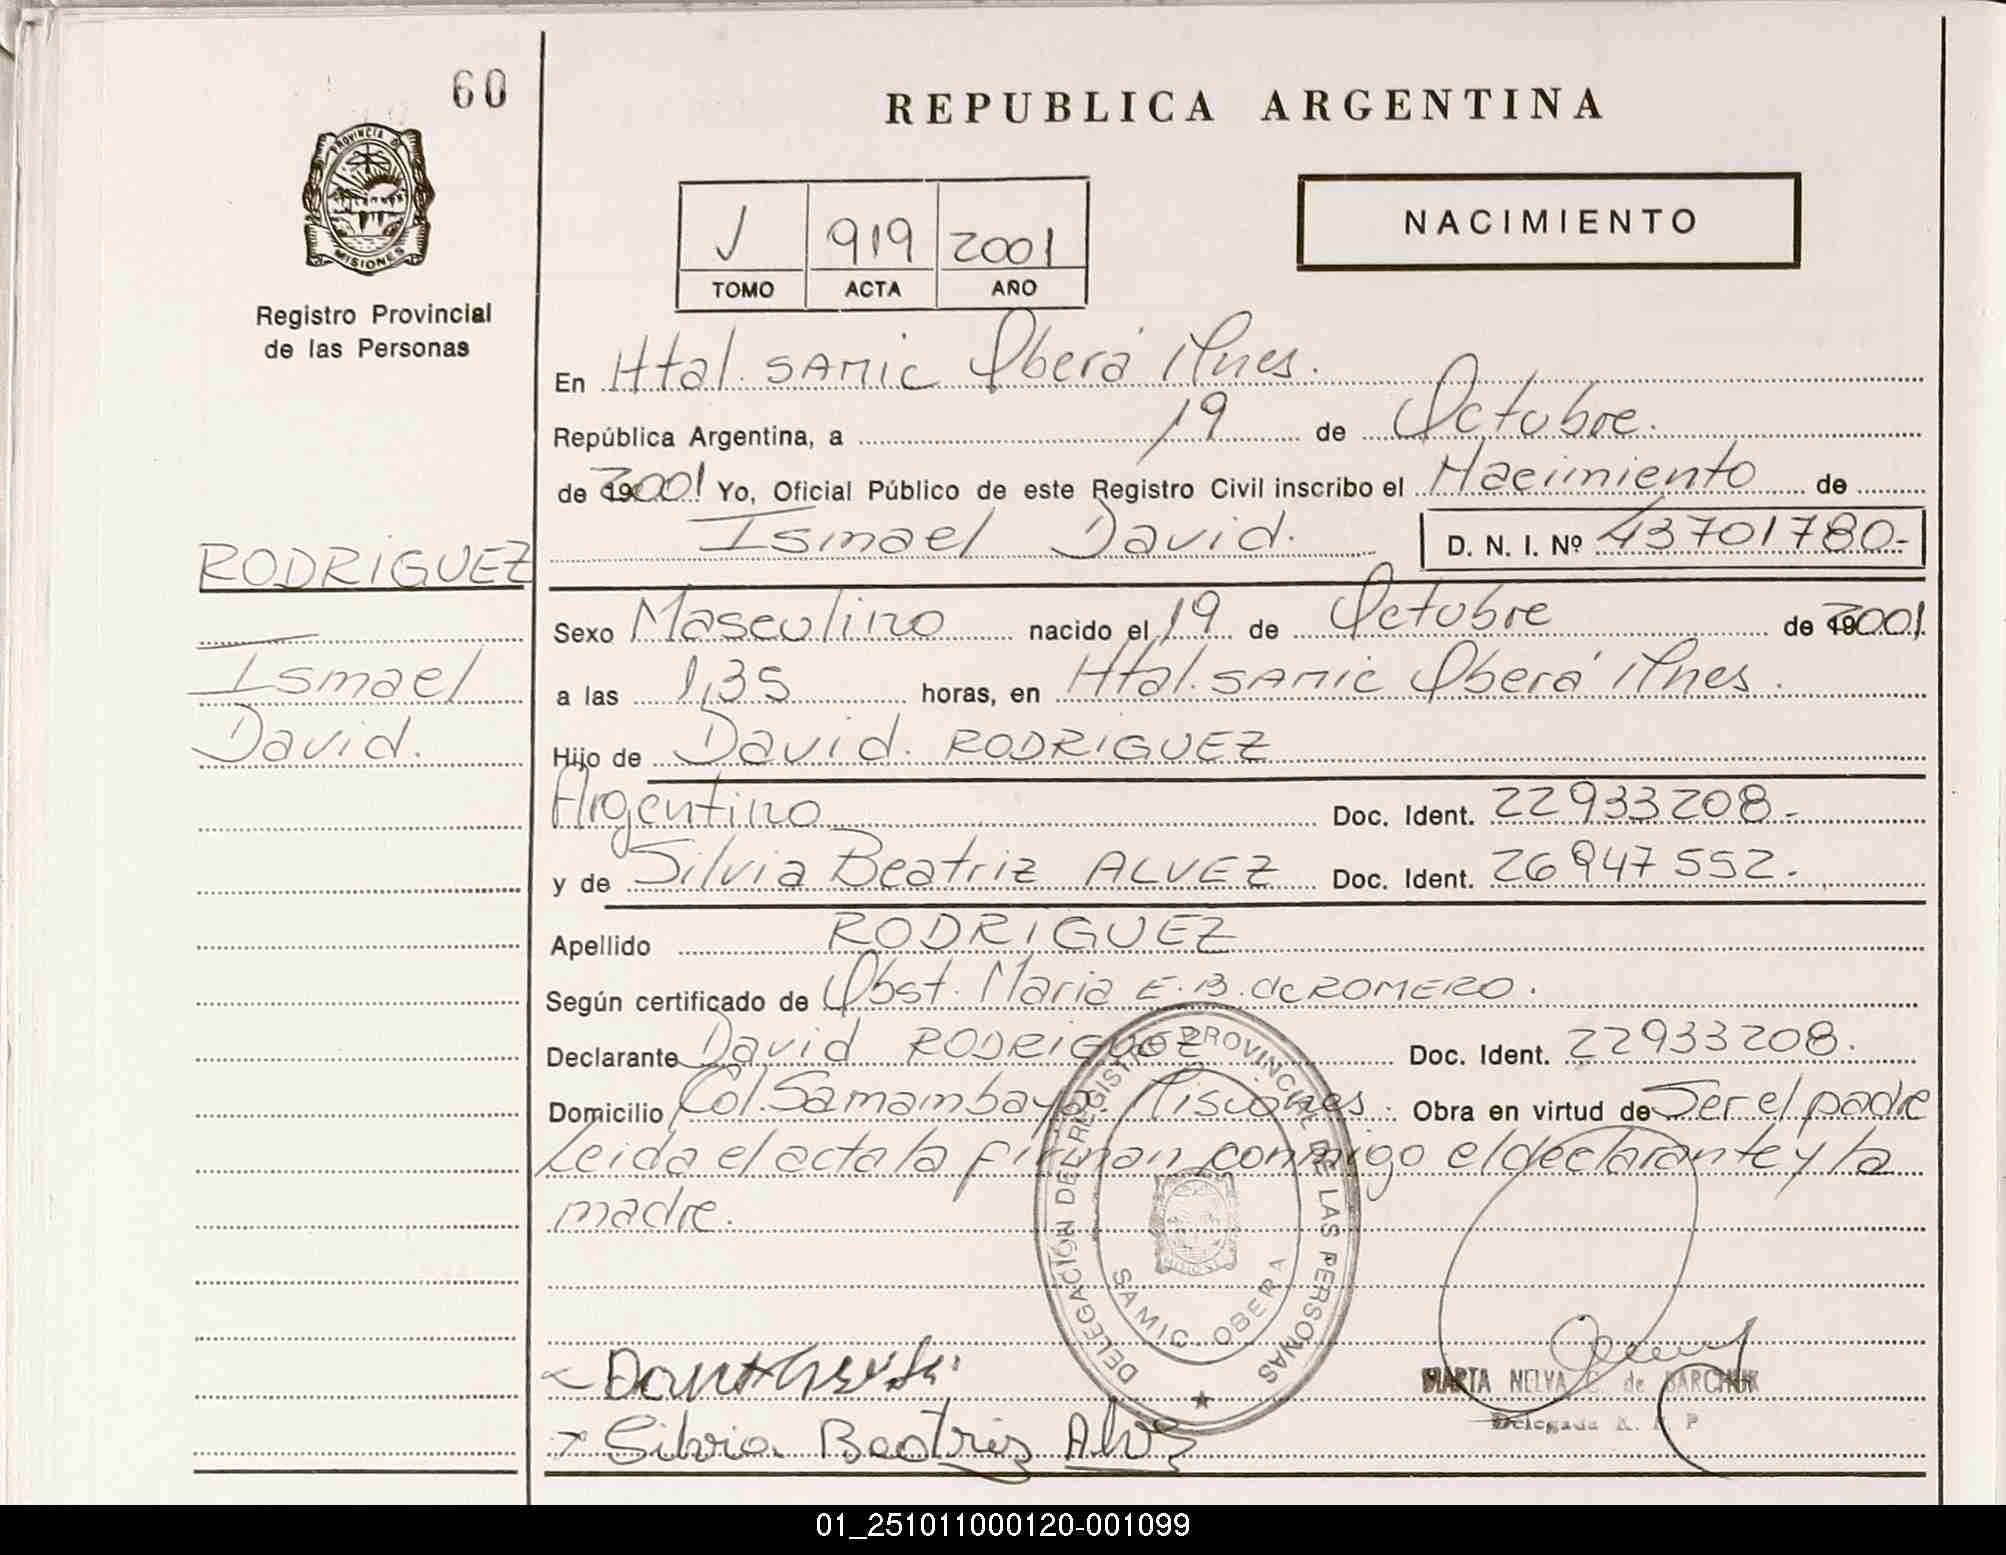 60
REPUBLICA ARGENTINA
PROVINCIA DE
MISIONES
Registro Provincial
de las Personas
NACIMIENTO
J 919 2001
TOMO ACTA AÑO
En Htal. SAMIC Oberá Mnes.
República Argentina, a 19 de Octubre.
de 2001 Yo, Oficial Público de este Registro Civil inscribo el Nacimiento de
Ismael David. D. N. I. Nº 43701780-
RODRIGUEZ
Ismael
David.
Sexo Masculino nacido el 19 de Octubre de 2001.
a las 1,35 horas, en Htal. SAMIC Oberá Mnes.
Hijo de David. RODRIGUEZ
Argentino Doc. Ident. 22933208-
y de Silvia Beatriz ALVEZ Doc. Ident. 26947552-
Apellido RODRIGUEZ
Según certificado de Obst. Maria E.B. de ROMERO.
Declarante David RODRIGUEZ Doc. Ident. 22933208.
Domicilio Col. Samambaya. Misiones. Obra en virtud de Ser el padre
Leida el acta la firman conmigo el declarante y la
madre.
DELEGACIÓN DEL REGISTRO PROVINCIAL DE LAS PERSONAS
SAMIC. OBERA
MARTA NELVA C. de BARCHUK
Delegada R. P. P
Silvia Beatris Alvez
01_251011000120-001099